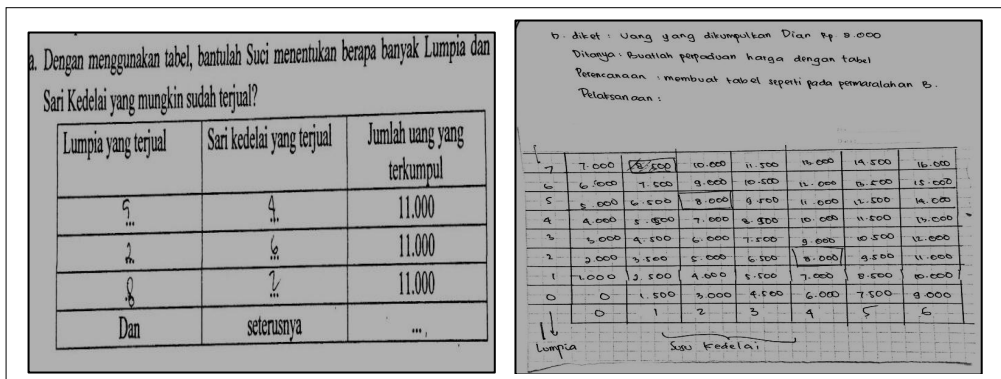 a. Dengan menggunakan tabel, bantulah Suci menentukan berapa banyak Lumpia dan
Sari Kedelai yang mungkin sudah terjual?
Lumpia yang terjual Sari kedelai yang terjual Jumlah uang yang terkumpul
5 4 11.000
2 6 11.000
8 2 11.000
Dan seterusnya ...,
b. diket : Uang yang dikumpulkan Dian Rp 8.000
Ditanya : Buatlah perpaduan harga dengan tabel
Perencanaan : membuat tabel seperti pada permasalahan B.
Pelaksanaan :
7 7.000 8.500 10.000 11.500 13.000 14.500 16.000
6 6.000 7.500 9.000 10.500 12.000 13.500 15.000
5 5.000 6.500 8.000 9.500 11.000 12.500 14.000
4 4.000 5.500 7.000 8.500 10.000 11.500 13.000
3 3.000 4.500 6.000 7.500 9.000 10.500 12.000
2 2.000 3.500 5.000 6.500 8.000 9.500 11.000
1 1.000 2.500 4.000 5.500 7.000 8.500 10.000
0 0 1.500 3.000 4.500 6.000 7.500 9.000
0 1 2 3 4 5 6
Lumpia Susu Kedelai